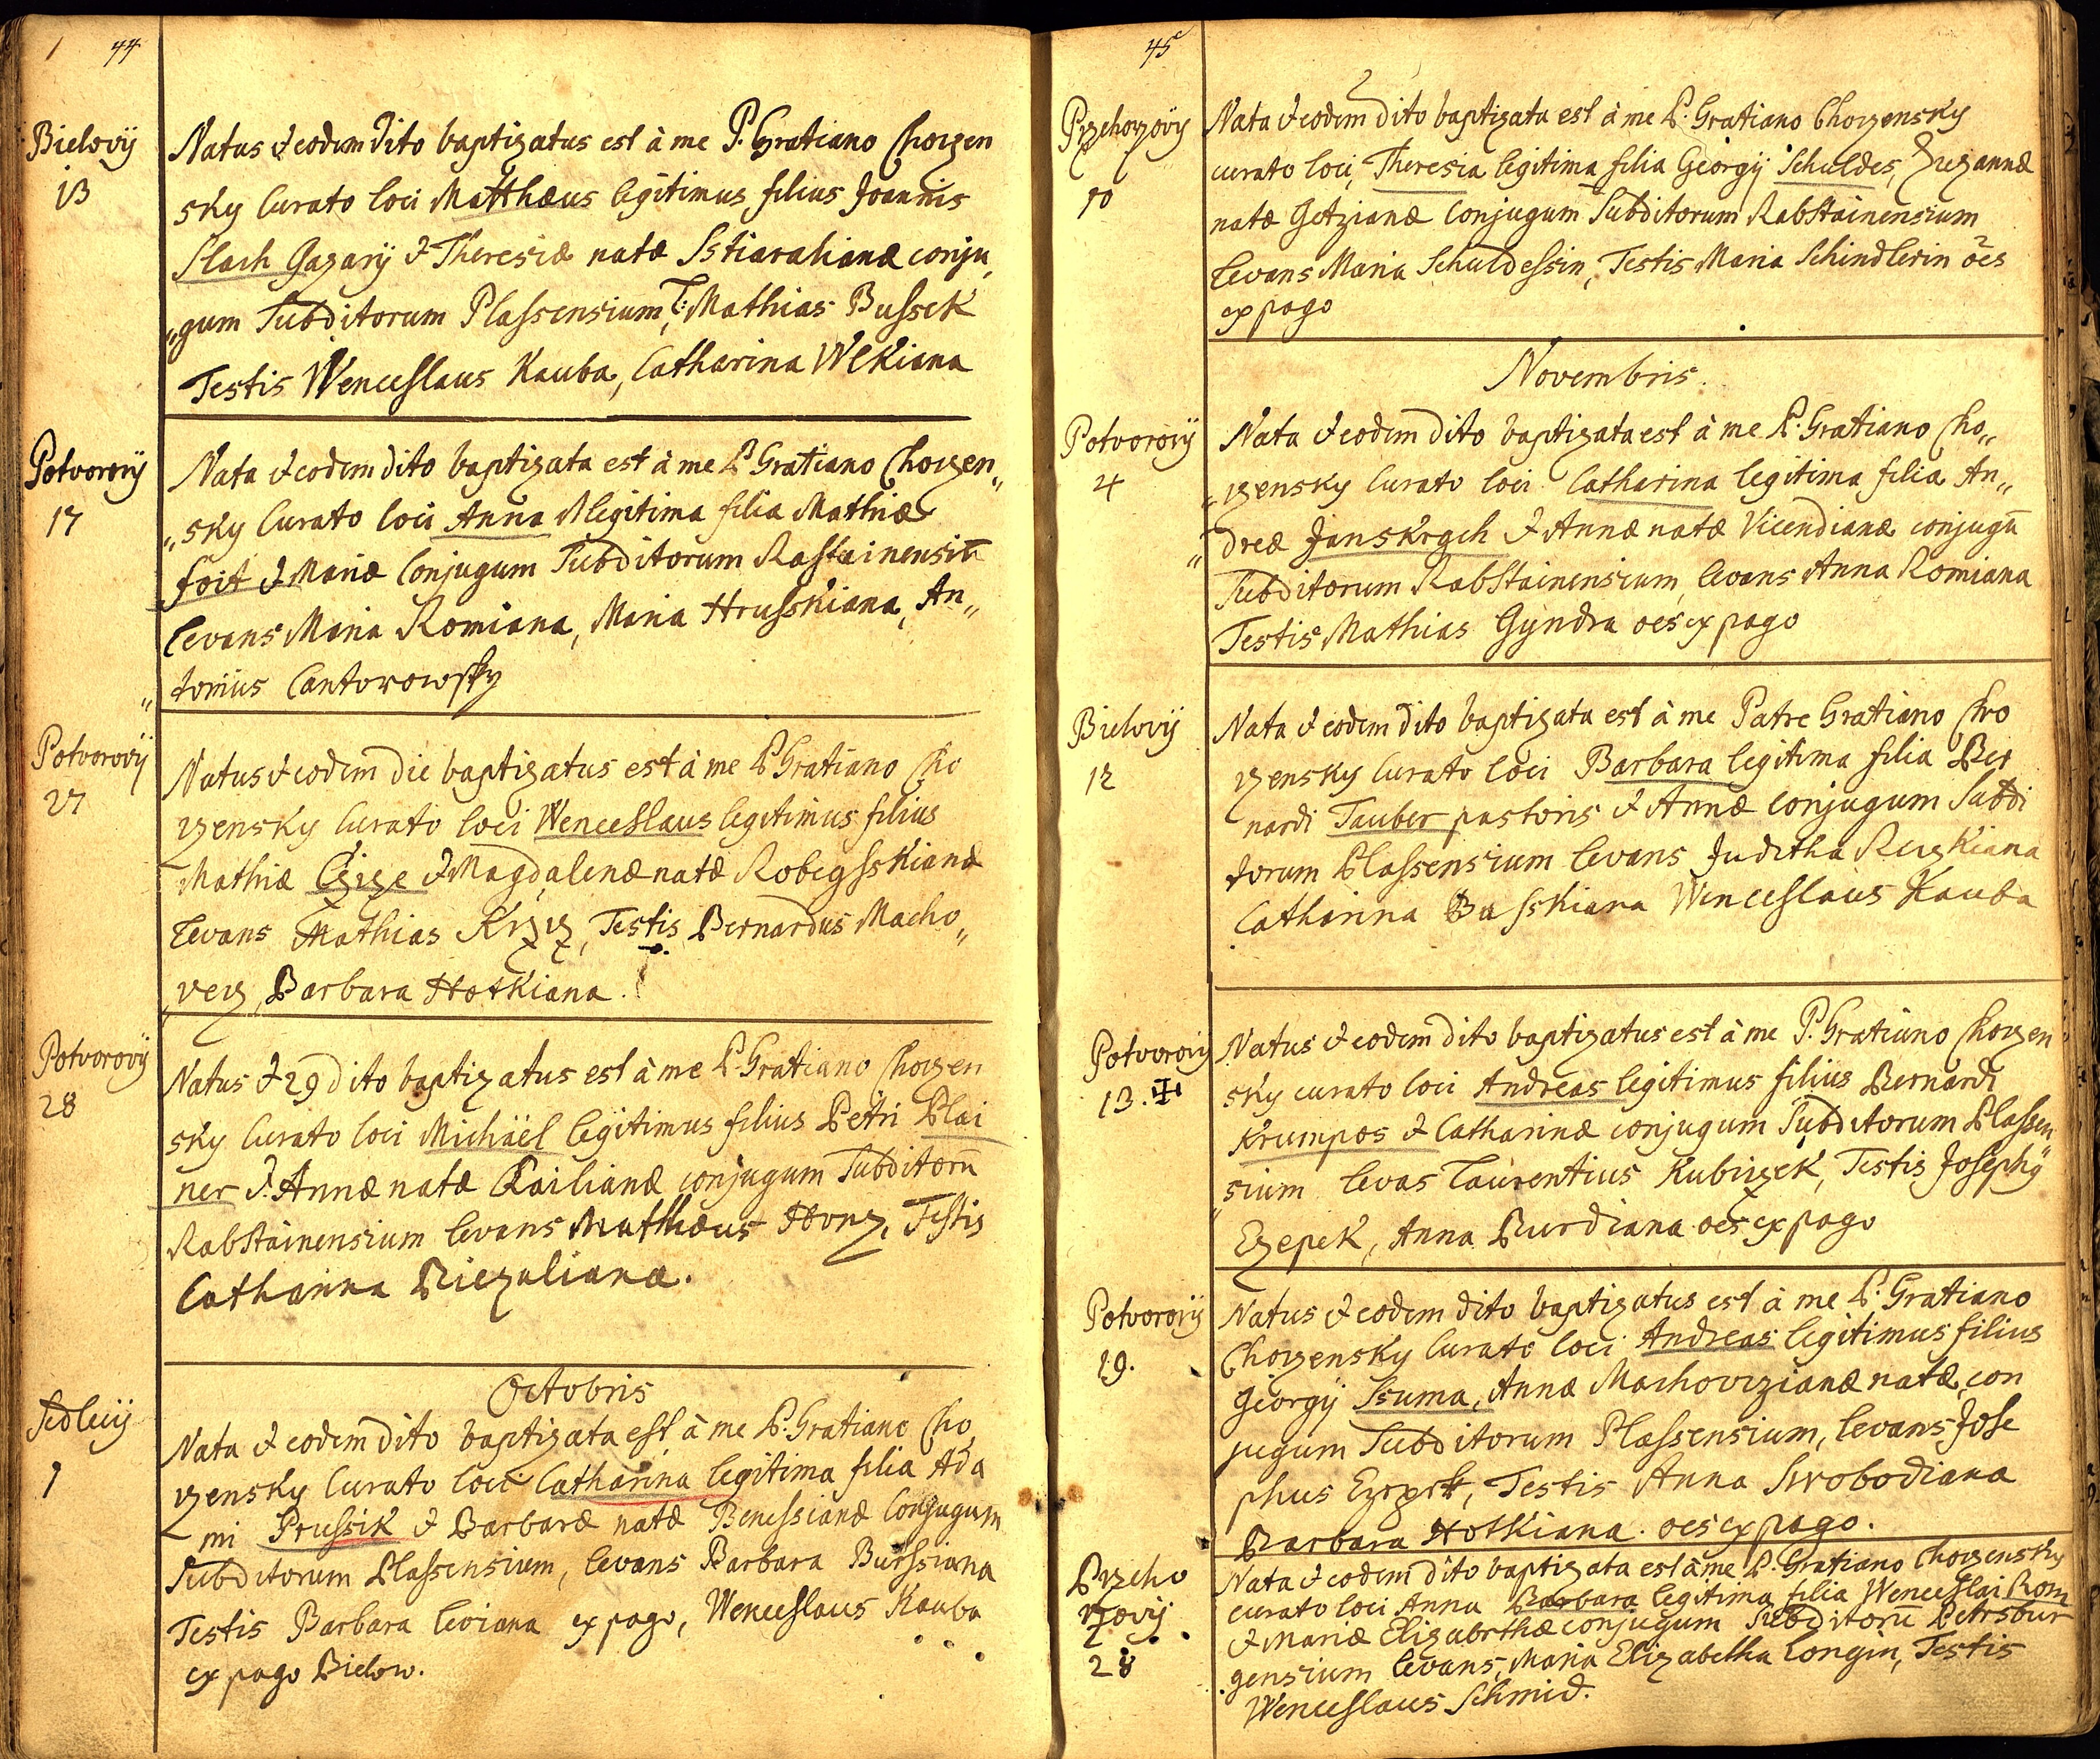 44
Bielovÿ
13
Natus & eodem dito baptizatus est à me P. Gratiano Chorzen
sky Curato loci Matthæus legitimus filius Joannis
Slach Gazarÿ & Theresiæ natæ Sstiarahianæ conju
gum Subditorum Plassensium, L: Mathias Bussek
Testis Wenceslaus Kauba, Catharina Wlkiana
Potvorovÿ
17
Nata & eodem dito baptizata est à me P Gratiano Chorzen„
„sky Curato loci Anna legitima filia Mathiæ
foit & Mariæ Conjugum Subditorum Rastainensiū
levans Maria Romiana, Maria Hrusskiana, An„
„tonius Cantorowsky
Potvorovÿ
27
Natus & eodem die baptizatus est à me P Gratiano Cho
rzensky Curato loci Wenceslaus legitimus filius
Mathiæ & Magdalenæ natæ Robegsskianæ
levans Mathias Testis Bernardus Macho„
„verz, Barbara Hotkiana.
Potvorovÿ
28
Natus & 29 dito baptizatus est à me P Gratiano Chorzen
sky Curato loci Michäel legitimus filius Petri Plai
ner & Annæ natæ conjugum Subditorū
Rabstainensium levans Matthæus Honz, Testis
Catharina Riezuliana.
Octobris
Sedlecÿ
1
Nata & eodem dito baptizata est à me P. Gratiano Cho
rzensky Curato loci Catharina legitima filia Ada
mi Prussik & Barbaræ natæ Benessianæ Conjugum
Subditorum Plassensium, levans Barbara Burssiana
Testis Barbara leviana ex pago, Wenceslaus Kauba
ex pago Bielow.
45
Przehorzovÿ
10
Nata & eodem dito baptizata est à me P. Gratiano Chorzensky
curato loci, Theresia legitima filia Georgÿ Schuldes, Zuzannæ
natæ Getzianæ Conjugum Subditorum Rabstainensium
levans Maria Schuldessin, Testis Maria Schindlerin oēs
ex pago
Novembris.
Potvorovÿ
4
Nata & eodem dito baptizata est à me P. Gratiano Cho„
„rzensky Curato loci Catharina legitima filia An„
„dreæ Janskrgch & Annæ natæ Vicendianæ conjugū
Subditorum Rabstainensium, levans Anna Romiana
Testis Mathias Gyndra oes ex pago
Bielovÿ
12
Nata & eodem dito baptizata est à me Patre Gratiano Cho
rzensky Curato loci Barbara legitima filia Ber
nardi Tauber pastoris & Annæ conjugum Subdi
torum Plassensium levans Juditha Rezkiana
Catharina Busskiana Wenceslaus Kauba
Potvorovÿ
13. ✠
Natus & eodem dito baptizatus est à me P. Gratiano Chorzen„
sky curato loci Andreas legitimus filius Bernardi
Krumpos & Catharinæ conjugum Subditorum Plassen„
„sium levas Laurentius Kubizek, Testis Josephÿ
Ezepek, Anna Burdiana oes ex pago
Potvorovÿ
19.
Natus & eodem dito baptizatus est à me P. Gratiano
Chorzensky Curato loci Andreas legitimus filius
Georgÿ Ssuma, Annæ Machovrzianæ natæ, con
jugum Subditorum Plassensium, levans Jose
phus Ezepek, Testis Anna Swobodiana
Barbara Hotkiana. oes ex pago.
Przeho
rzovÿ
28
Nata & eodem dito baptizata est à me P. Gratiano Chorzensky
curato loci Anna Barbara legitima filia Wenceslai Rom
& Mariæ Elizabethæ conjugum Subditorū Petrsbur
gensium levans, Maria Elizabetha Longin, Testis
Wenceslaus Schmid.